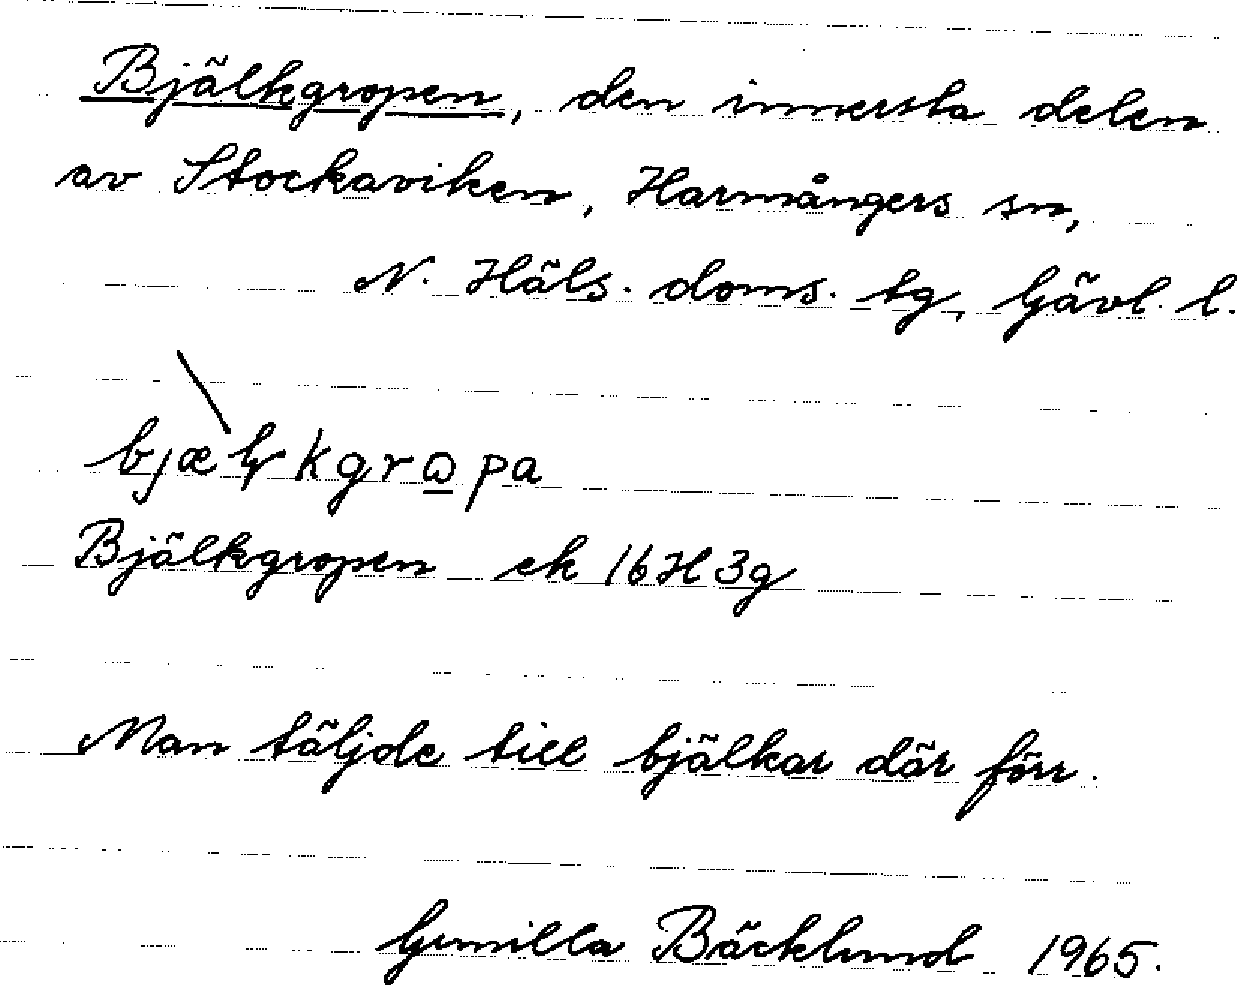 Bjälkgropen, den innersta delen
av Stockaviken, Harmångers sn,
N. Häls. doms. tg, Gävl. l.
Bjälkgropen ek 16H3g
Man täljde till bjälkar där förr.
Gunilla Bäcklund 1965.